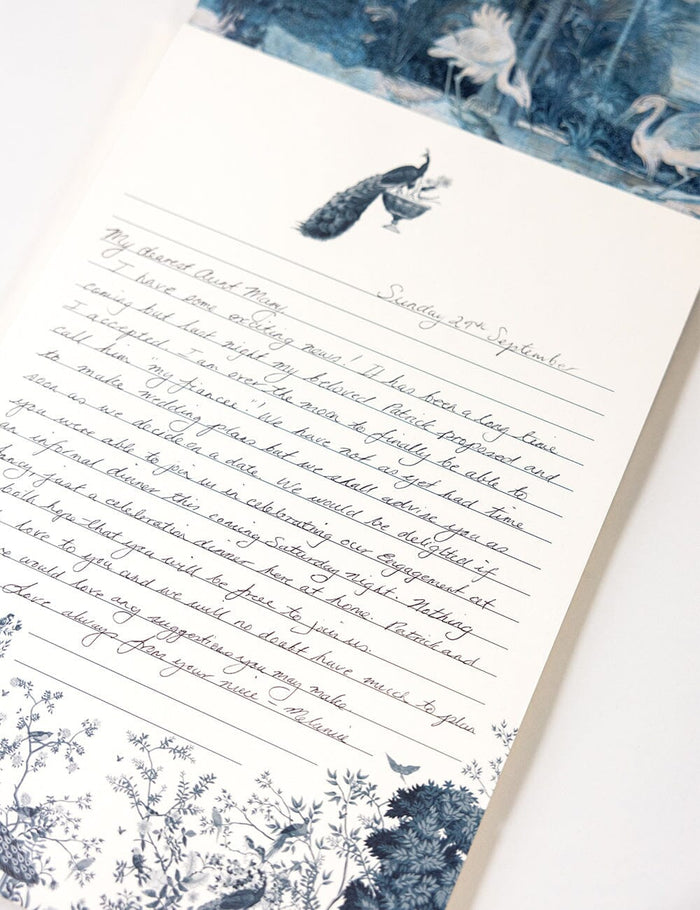 Sunday 29th September
My dearest Aunt Mary,
I have some exciting news! It has been a long time
coming but last night my beloved Patrick proposed and
I accepted. I am over the moon to finally be able to
call him "my fiancee"! We have not as yet had time
to make wedding plans but we shall advise you as
soon as we decide on a date. We would be delighted if
you were able to join us in celebrating our Engagement at
an informal dinner this coming Saturday night. Nothing
ancy just a celebration dinner here at home. Patrick and
both hope that you will be free to join us.
love to you and we will no doubt have much to plan
would love any suggestions you may make
Love always from your niece - Melanie